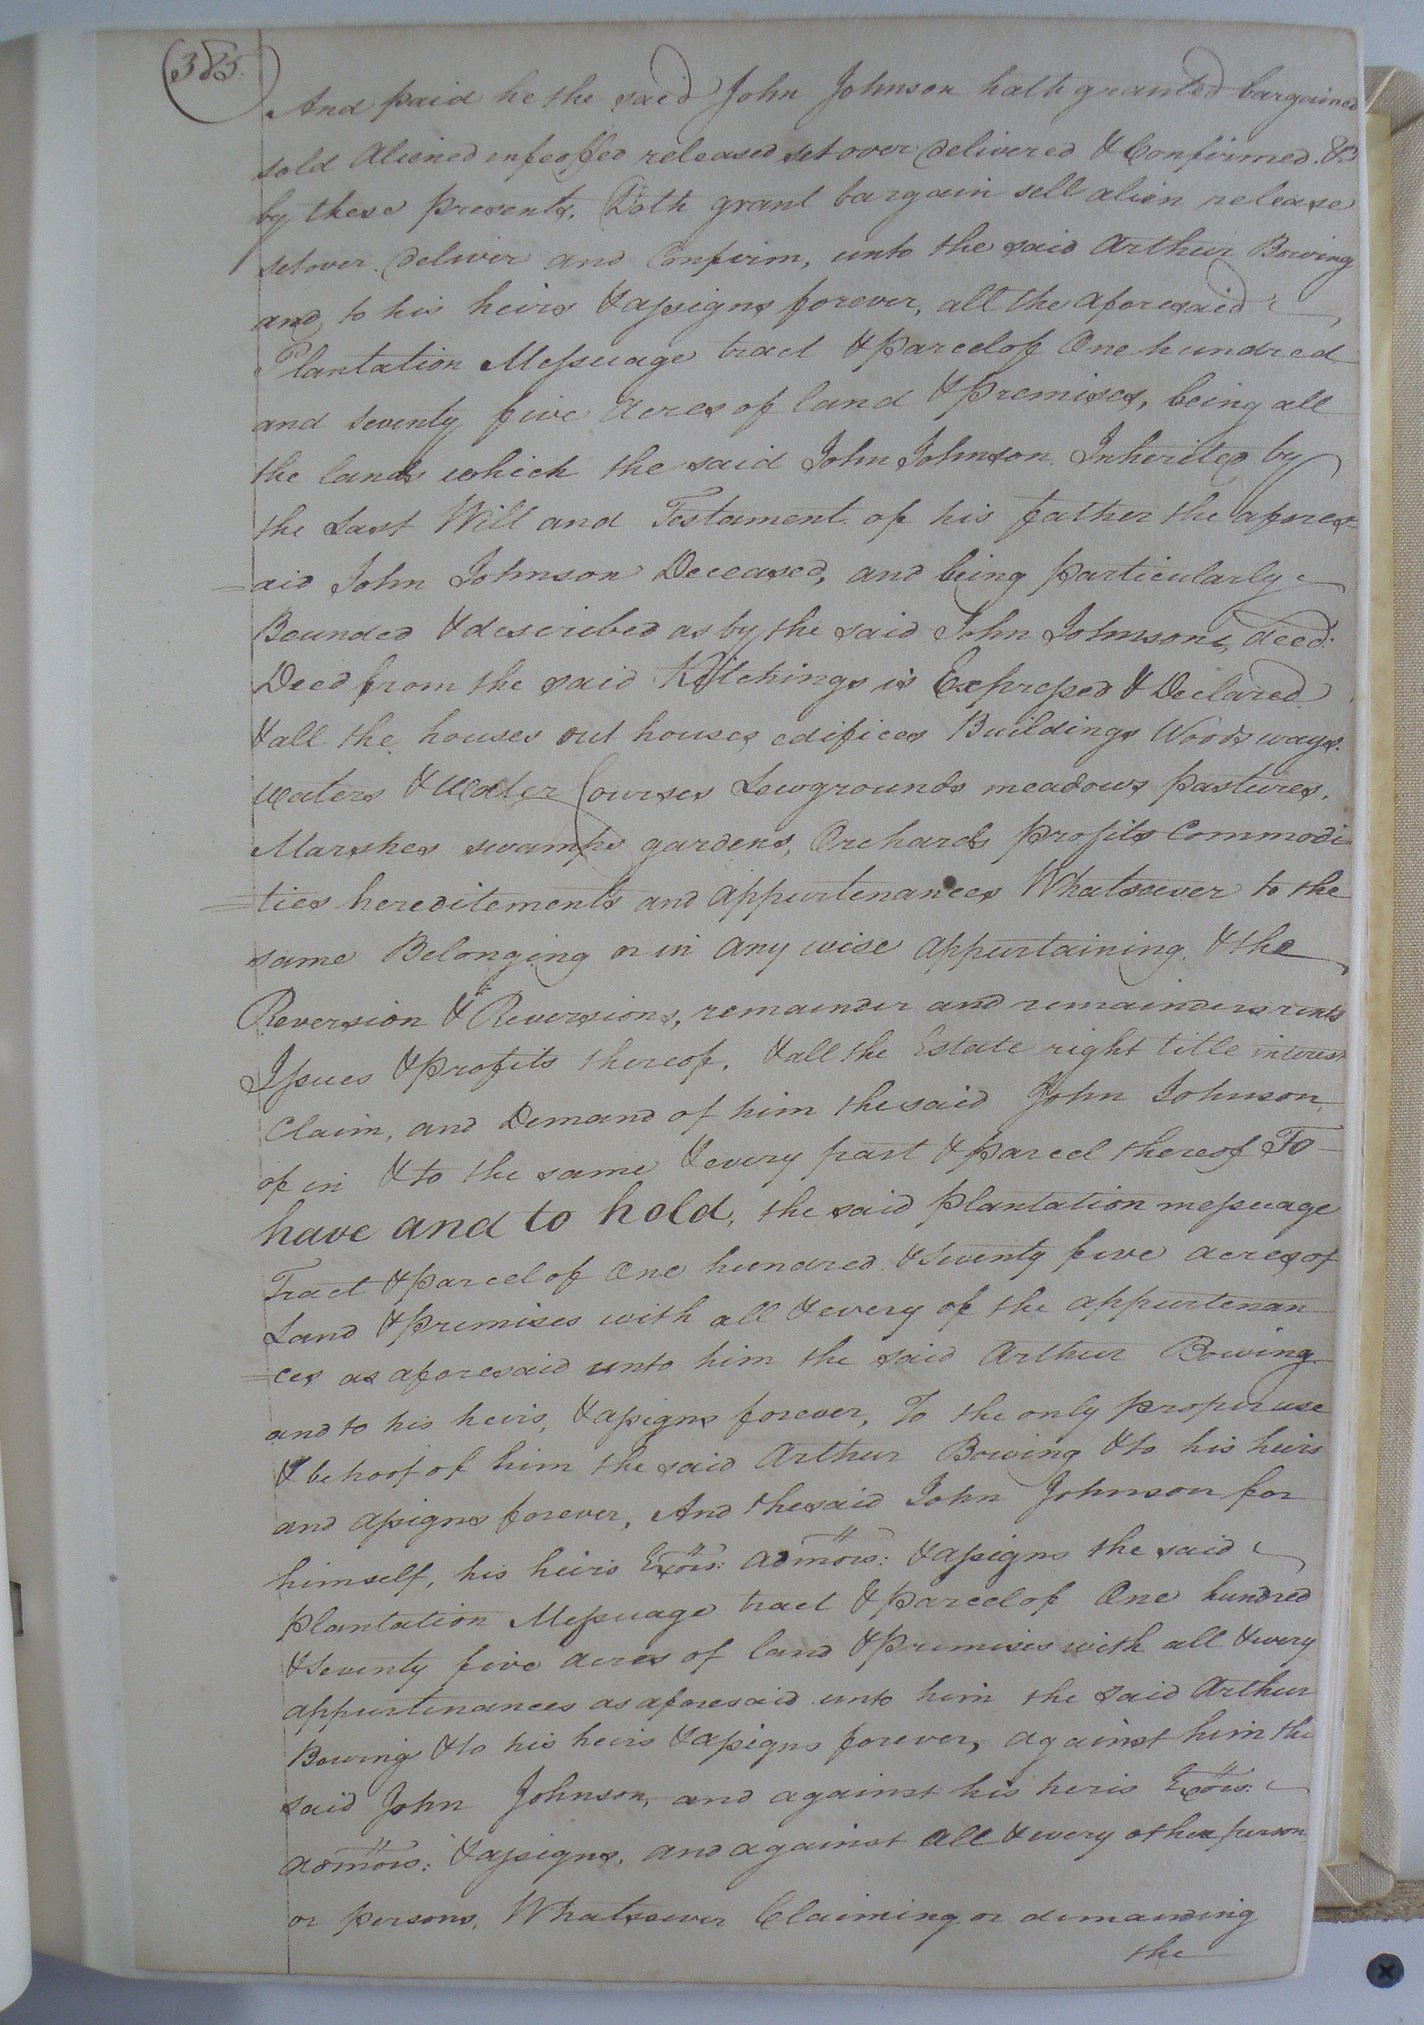 (385.)
And paid he the said John Johnson hath granted bargained
sold Aliened enfeoffed released setover delivered & Confirmed. &
by these presents, Doth grant bargain sell alien release
setover. Deliver and Confirm, unto the said Arthur Bowing
and to his heirs & assigns forever, all the aforesaid
Plantation Messuage tract & parcel of One hundred
and seventy five Acres of land & premises, being all
the lands which the said John Johnson Inherited by
the Last Will and Testament of his father the afores
=aid John Johnson Deceased, and being particularly
Bounded & described as by the said John Johnsons, deed:
Deed from the said Kitchings is Expressed & Declared
& all the houses out houses edifices Buildings Woods ways.
Waters & Water Courses Lowgrounds meadows pastures,
Marshes swamps gardens, Orchards profits Commodi
=ties hereditements and appurtenances Whatsoever to the
same Belonging or in any wise appurtaining & the
Reversion & Reversions, remainder and remainders rents
Issues & profits thereof, & all the Estate right title interest
Claim, and Demand of him the said John Johnson,
of in & to the same & every part & parcel thereof To
have and to hold, the said plantation messuage
Tract & parcel of One hundred & seventy five acres of
Land & premises with all & every of the appurtenan
=ces as aforesaid unto him the said Arthur Bowing
and to his heirs, & assigns forever, To the only proper use
& behoof of him the said Arthur Bowing & to his heirs
and assigns forever, And the said John Johnson for
himself, his heirs Exōrs: admōrs: & assigns the said
plantation Messuage tract & parcel of One hundred
& seventy five acres of land & premises with all & every
appurtenances as aforesaid unto him the said Arthur
Bowing & to his heirs & assigns forever, against him the
said John Johnson, and against his heris Exōrs:
admōrs: & assigns, and against All & every other person
or persons, Whatsoever Claiming or demanding
the